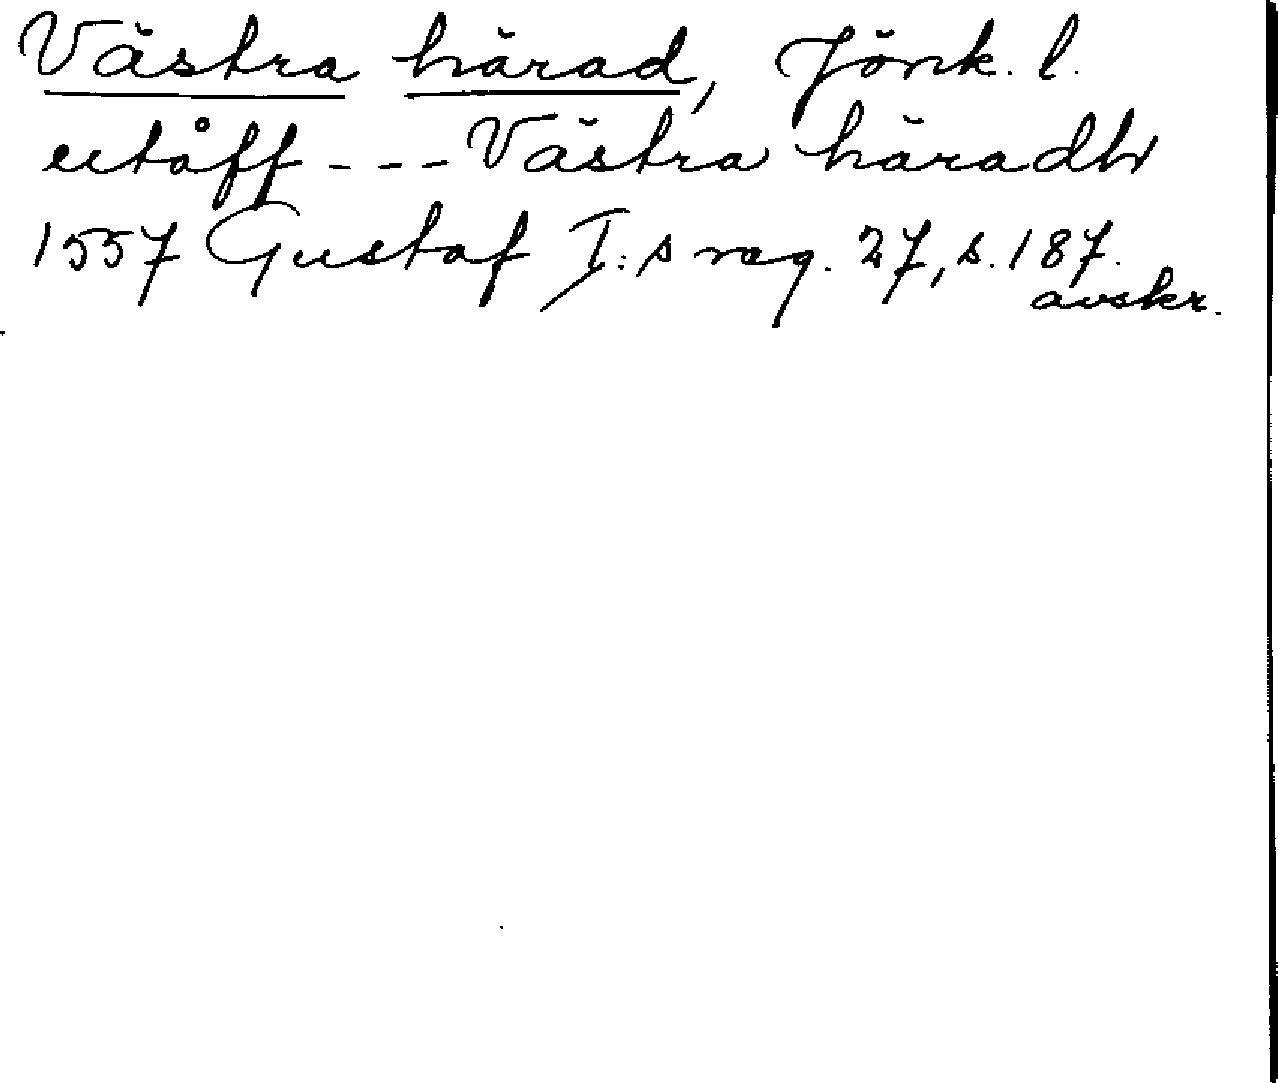 Västra härad, Jönk. l.
utåff - - - Västra häradh
1557 Gustaf I:s reg. 27, s. 187.
avskr.